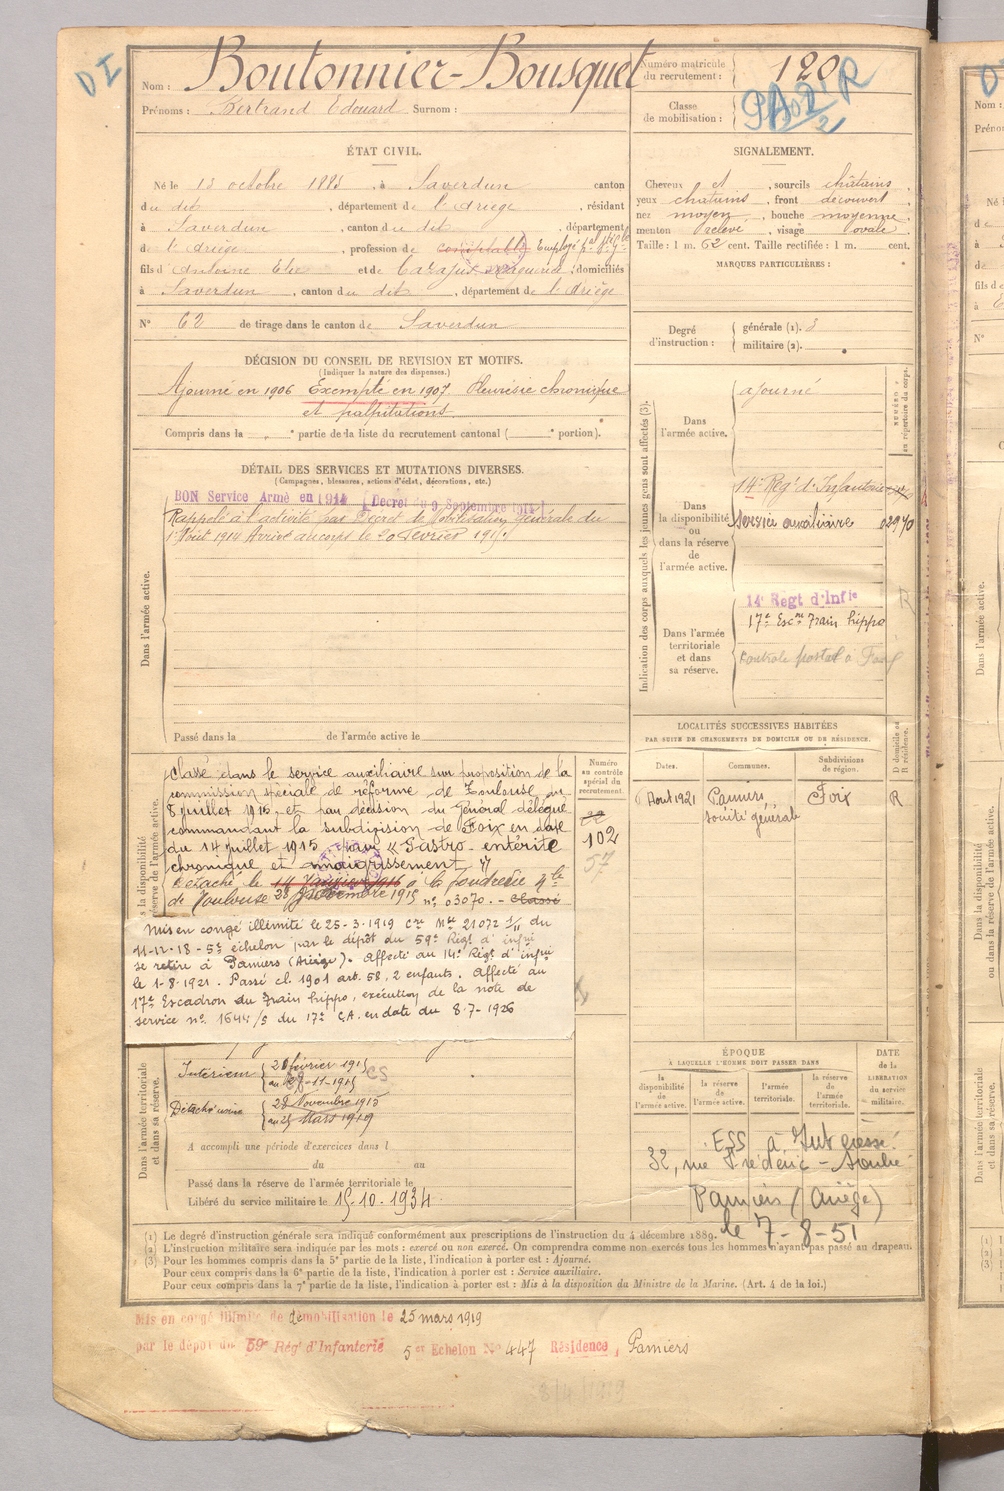 DI
Nom : Boutonnier-Bousquet
Prénoms : Bertrand Edouard Surnom :
Numéro matricule du recrutement : 120
Classe de mobilisation :
ÉTAT CIVIL.
Né le 13 octobre 1885, à Saverdun canton
du dit, département de l'Ariège, résidant
à Saverdun, canton du dit, département
de l'Ariège, profession de comptable Employé
fils d'Antoine et de domiciliés
à Saverdun, canton du dit, département de l'Ariège
N° 62 de tirage dans le canton de Saverdun
SIGNALEMENT.
Cheveux et, sourcils châtains
yeux châtains, front découvert
nez moyen, bouche moyenne
menton relevé, visage ovale
Taille : 1 m. 62 cent. Taille rectifiée : 1 m. cent.
MARQUES PARTICULIÈRES :
Degré d'instruction : générale (1). 3
militaire (2).
DÉCISION DU CONSEIL DE REVISION ET MOTIFS.
(Indiquer la nature des dispenses.)
Ajourné en 1906 Exempté en 1907 Pleurésie chronique
et palpitations
Compris dans la e partie de la liste du recrutement cantonal ( e portion).
DÉTAIL DES SERVICES ET MUTATIONS DIVERSES.
(Campagnes, blessures, actions d'éclat, décorations, etc.)
BON Service Armé en 1914 [Décret du 9 Septembre 1914]
Rappelé à l'activité par Décret de Mobilisation générale du
1er Août 1914 Arrivé au corps le 20 février 1915
Dans l'armée active.
Passé dans la de l'armée active le
Indication des corps auxquels les jeunes gens sont affectés (3).
NUMÉRO au répertoire du corps.
Dans l'armée active.
ajourné
Dans la disponibilité ou dans la réserve de l'armée active.
14e Régt d'Infanterie
Service auxiliaire 02970
Dans l'armée territoriale et dans sa réserve.
14e Régt d'Infie
17e Escon Train hippo
Controle postal à Foix
LOCALITÉS SUCCESSIVES HABITÉES
PAR SUITE DE CHANGEMENTS DE DOMICILE OU DE RÉSIDENCE.
Dates. Communes. Subdivisions de région. D domicile ou R résidence.
Aout 1921 Pamiers Foix R
société générale
Numéro au contrôle spécial du recrutement.
102
57
Classé dans le service auxiliaire sur proposition de la
commission spéciale de réforme de Toulouse du
8 juillet 1915 et par décision du Général délégué
commandant la subdivision de Foix en date
du 14 juillet 1915 pour « Gastro-entérite
chronique et amaigrissement »
Détaché le 14 Janvier 1916 à la fonderie
de Toulouse 28 Novembre 1915 n° 03070. - Classé
Mis en congé illimité le 25-3-1919 Cre Mlle 21072 1/11 du
11-12-18 - 5e échelon par le dépôt du 59e Régt d'infrie
se retire à Pamiers (Ariège). Affecté au 14e Régt d'infrie
le 1-8-1921. Passé cl. 1901 art. 58, 2 enfants. Affecté au
17e Escadron du Train hippo, exécution de la note de
service n° 1644/S du 17e C.A. en date du 8-7-1926
Dans l'armée territoriale et dans sa réserve.
Intérieur 20 février 1915
au 27-11-1915 CS
Détaché usine 28 Novembre 1915
au 25 Mars 1919
A accompli une période d'exercices dans l
du au
Passé dans la réserve de l'armée territoriale le
Libéré du service militaire le 15.10.1934
ÉPOQUE
À LAQUELLE L'HOMME DOIT PASSER DANS
la disponibilité de l'armée active. la réserve de l'armée active. l'armée territoriale. la réserve de l'armée territoriale.
DATE de la LIBÉRATION du service militaire.
ESS à
32, rue Frédéric-Soulié
Pamiers (Ariège)
le 7-8-51
(1) Le degré d'instruction générale sera indiqué conformément aux prescriptions de l'instruction du 4 décembre 1889.
(2) L'instruction militaire sera indiquée par les mots : exercé ou non exercé. On comprendra comme non exercés tous les hommes n'ayant pas passé au drapeau.
(3) Pour les hommes compris dans la 5e partie de la liste, l'indication à porter est : Ajourné.
Pour ceux compris dans la 6e partie de la liste, l'indication à porter est : Service auxiliaire.
Pour ceux compris dans la 7e partie de la liste, l'indication à porter est : Mis à la disposition du Ministre de la Marine. (Art. 4 de la loi.)
Mis en congé illimité de démobilisation le 25 mars 1919
par le dépôt du 59e Régt d'Infanterie 5e Echelon N° 447 Résidence, Pamiers